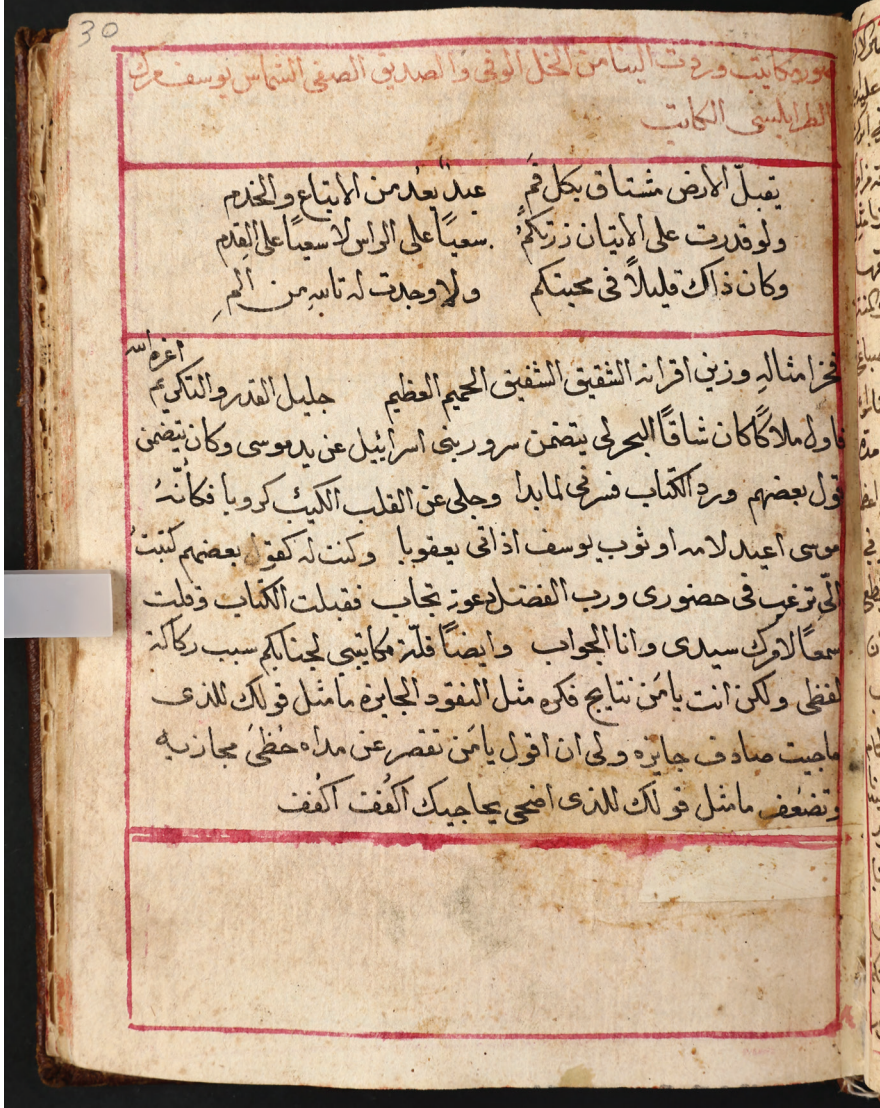 30
صورة مكاتيب وردت الينا من الخل الوفي والصديق الصفي الشماس يوسف مرك
الطرابلسي الكاتب
يقبلّ الارض مشتاق بكل فمَ عبدٌ يُعدُ من الاتباع والخدم
ولو قدرت على الاتيان زرتكمُ سعياً على الراس لا سعياً على القِدم
وكان ذاك قليلاً في محبتكم ولا وجدت له تاثيرِ من الم
فخر امثالهِ وزين اقرانه الشقيق الشفيق الحميم العظيم جليل القدر والتكريم
اعزه الله
كان شاقاً البحر لي يتضمن سرور بني اسراييل عن يد موسى وكان يتضمن
قول بعضهم ورد الكتاب فسرني لما بدا وجلى عن القلب الكيئب كروبا فكأنّهُ
موسى اعيد لامه او ثوب يوسف اذ اتى يعقوبا وكنت له كقول بعضهم كتبتُ
الّي ترغب في حضوري ورب الفضل دعوته تجاب فقبلت الكتاب وقلت
سمعاً لامرك سيدي وانا الجواب وايضاً قلّة مكاتيبي لجنابكم سبب ركاكة
لفظي ولكن انت يا مَن نتايج فكره مثل النقود الجايزه ما مثل قولك للذي
حاجيت صادف جايزه ولي ان اقول يا مَن تقصر عن مداه خُطَى مجازيه
وتضعف ما مثل قولك للذي اضحى يحاجيك اكفُف اكفُف